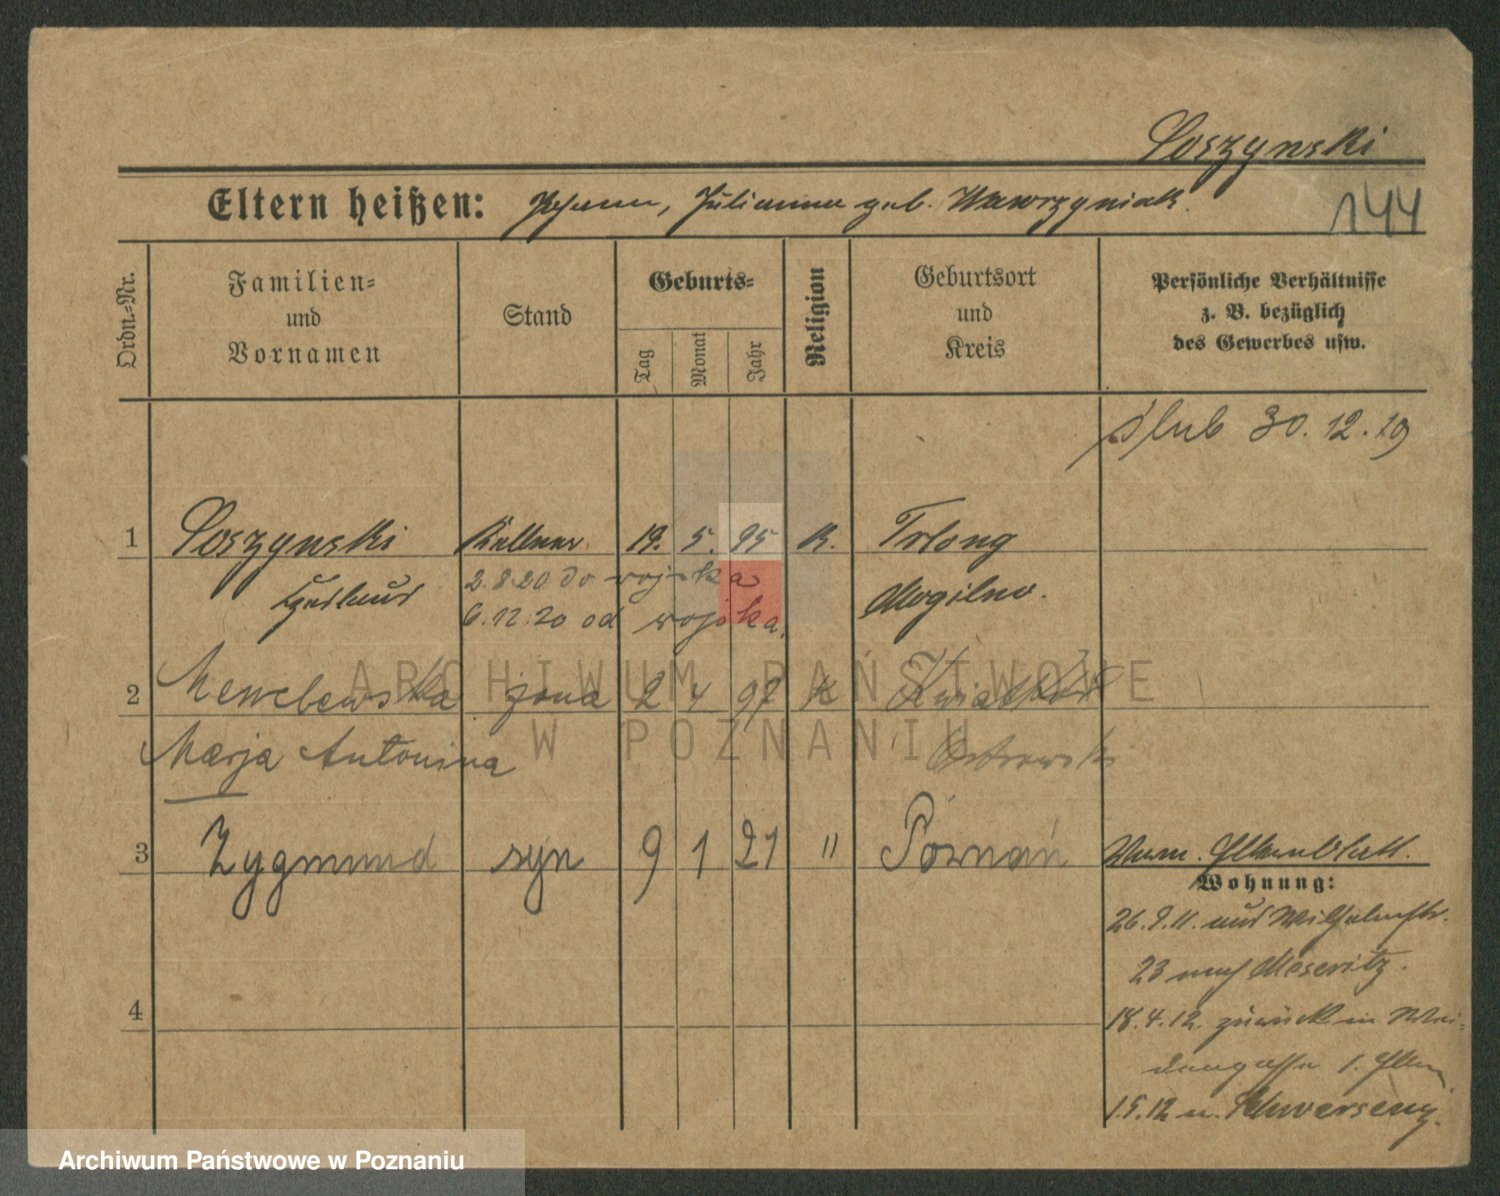 Soszynski
Eltern heißen: Johann, Julianna geb. Wawrzyniak.
144
Ordn.-Nr.
Familien-
und
Vornamen
Stand
Geburts-
Tag
Monat
Jahr
Religion
Geburtsort
und
Kreis
Persönliche Verhältnisse
z. B. bezüglich
des Gewerbes usw.
ślub 30.12.19
1 Soszynski Kellner 19. 5. 95 K. Trlong
2.8.20 do wojska
Mogilno.
6.12.20 od wojska.
2 żona 2 4 97 K
Marja Antonina
Ostrowski
3 Zygmund syn 9 1 21 " Poznań
Wohnung:
26.9.11. aus Wilhelmstr.
23 nach Meseritz.
4
18.4.12. zurück in Wei-
dengasse 1.
1.5.12 n. Schwersenz.
ARCHIWUM PAŃSTWOWE
W POZNANIU
Archiwum Państwowe w Poznaniu